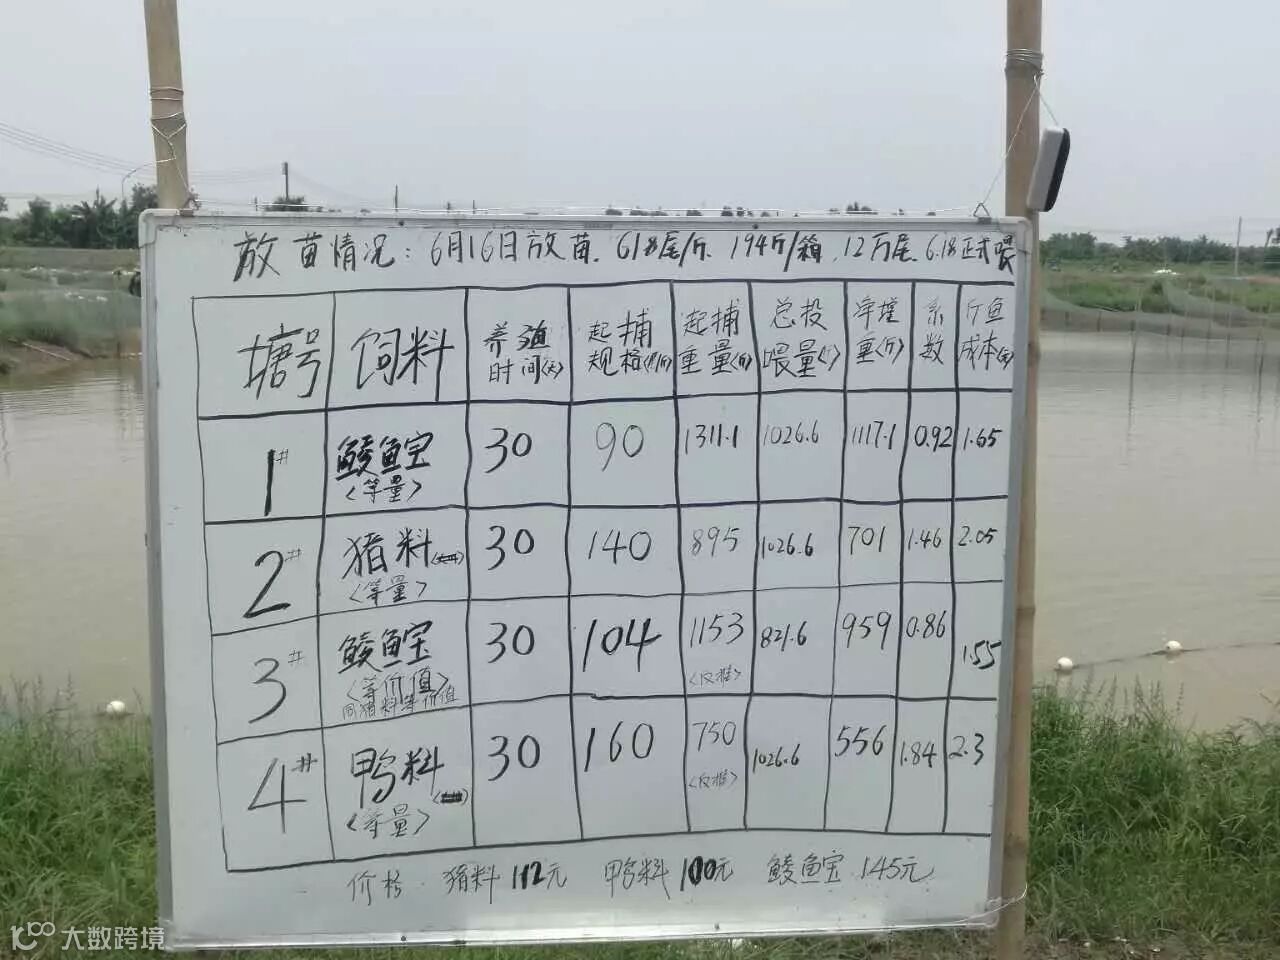 放苗情况：6月16日放苗. 618尾/斤. 194斤/箱. 12万尾. 6.18正式喂
塘号 饲料 养殖时间(天) 起捕规格(尾/斤) 起捕重量(斤) 总投喂量(斤) 净增重(斤) 系数 斤鱼成本(元)
1# 鲮鱼宝 30 90 1311.1 1026.6 1117.1 0.92 1.65
<等量>
2# 猪料 30 140 895 1026.6 701 1.46 2.05
<等量>
3# 鲮鱼宝 30 104 1153 821.6 959 0.86 1.55
<等价值> <反推>
同猪料等价值
4# 鸭料 30 160 750 1026.6 556 1.84 2.3
<等量> <反推>
价格 猪料112元 鸭料100元 鲮鱼宝 145元
10100 大数跨境